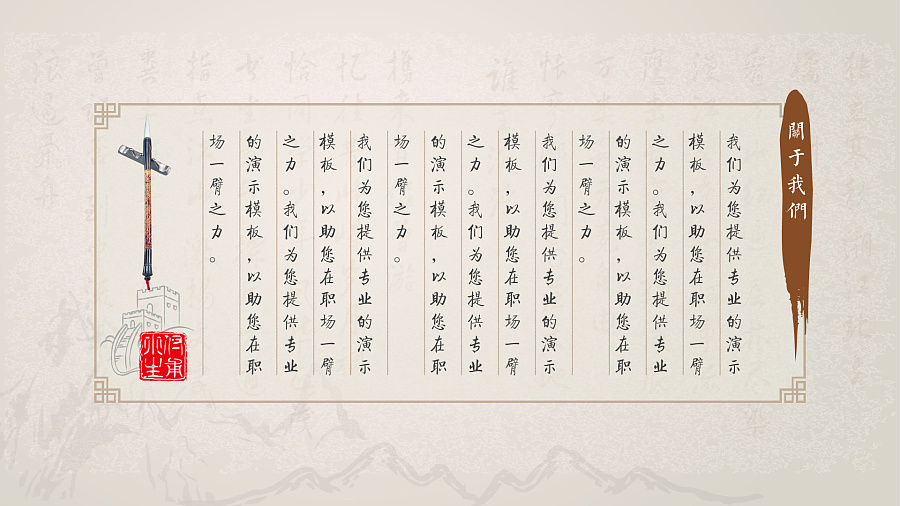 關于我們
我们为您提供专业的演示
模板，以助您在职场一臂
之力。我们为您提供专业
的演示模板，以助您在职
场一臂之力。
我们为您提供专业的演示
模板，以助您在职场一臂
之力。我们为您提供专业
的演示模板，以助您在职
场一臂之力。
我们为您提供专业的演示
模板，以助您在职场一臂
之力。我们为您提供专业
的演示模板，以助您在职
场一臂之力。